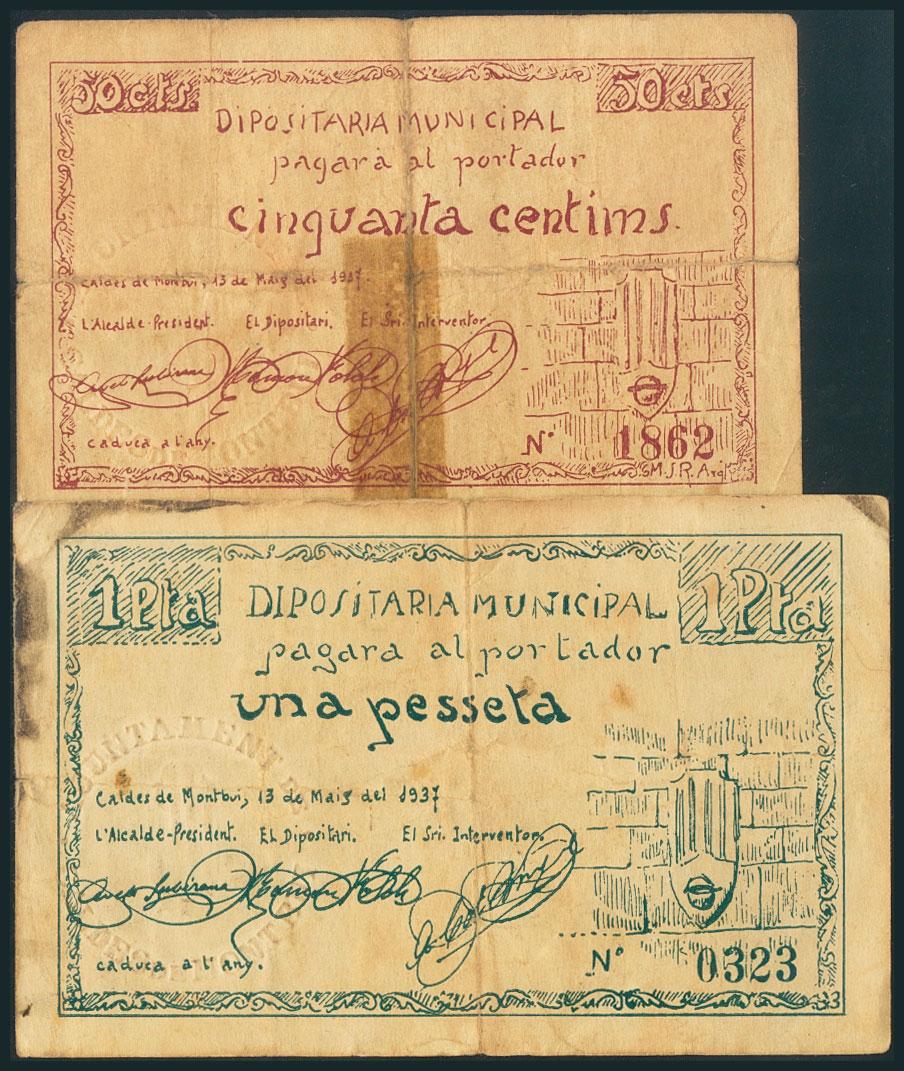 50 cts 50 cts
DIPOSITARIA MUNICIPAL
pagarà al portador
cinquanta centims.
Caldes de Montbui, 13 de Maig del 1937.
L'Alcalde-President. El Dipositari. El Sri. Interventor
caduca a l'any.
Nº 1862
M.J.R. Arqt
1 Pta 1 Pta
DIPOSITARIA MUNICIPAL
pagara al portador
una pesseta
AJUNTAMENT
Caldes de Montbui, 13 de Maig del 1937
L'Alcalde-President. El Dipositari. El Sri. Interventor.
caduca a l'any.
Nº 0323